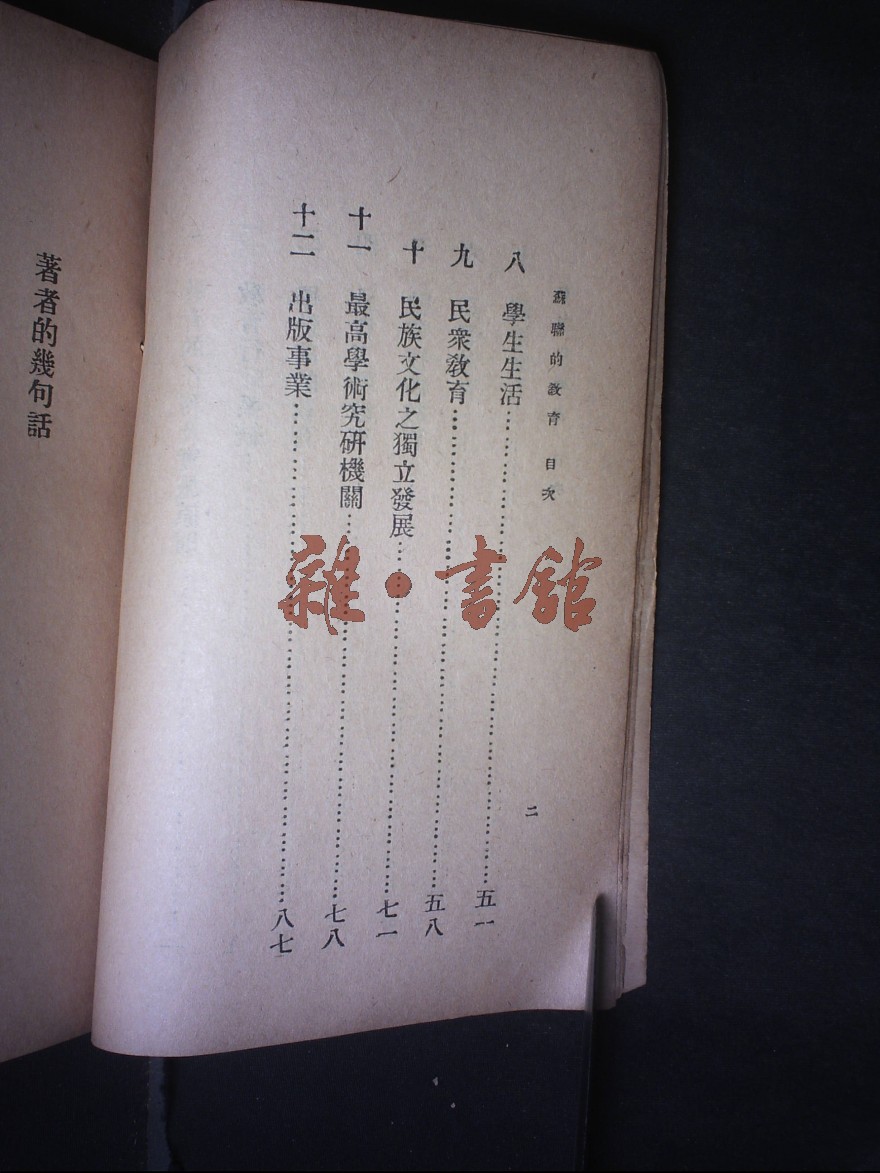 蘇聯的教育 目次
二
八 學生生活……五一
九 民衆敎育……五八
十 民族文化之獨立發展……七一
十一 最高學術究研機關……七八
十二 出版事業……八七
著者的幾句話
雜·書館